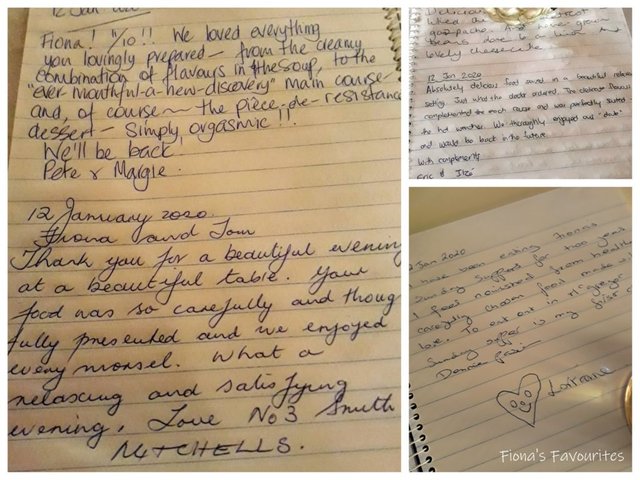 12 Jan
Fiona! 11/10!! We loved everything
you lovingly prepared – from the creamy
combination of flavours in the soup, to the
"ever mouthful-a-new-discovery" main course
and, of course – the pièce-de-resistance
dessert – simply orgasmic!!
We'll be back,
Pete & Margie.
12 January 2020.
Fiona and Tom
Thank you for a beautiful evening
at a beautiful table. Your
food was so carefully and though
fully presented and we enjoyed
every morsel. What a
relaxing and satisfying
evening, Love No 3 Smuth
MITCHELLS.
Delicious
gazpacho.
lovely cheesecake
12 Jan 2020
Absolutely delicious food served in a beautiful relaxed
setting. Just what the doctor ordered. The delicate flavours
complemented the each course and was perfectly suited to
the hot weather. We thoroughly enjoyed our "date"
and would be back in the future.
With compliments
Eric & Ilze
2 Jan 2020
I have been eating Fiona's
Sunday Suppers for two years
I feel nourished from health
carefully chosen food made with
love. To eat out in
Sunday supper is my first
Lorraine
Fiona's Favourites